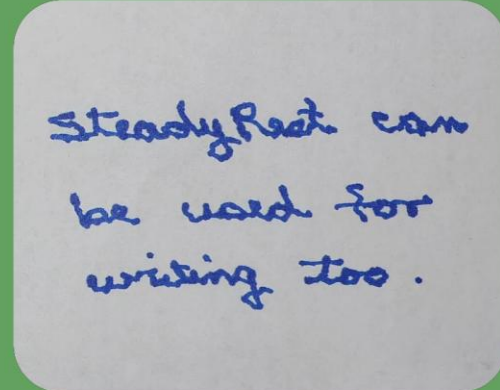 SteadyRest can
be used for
writing too.